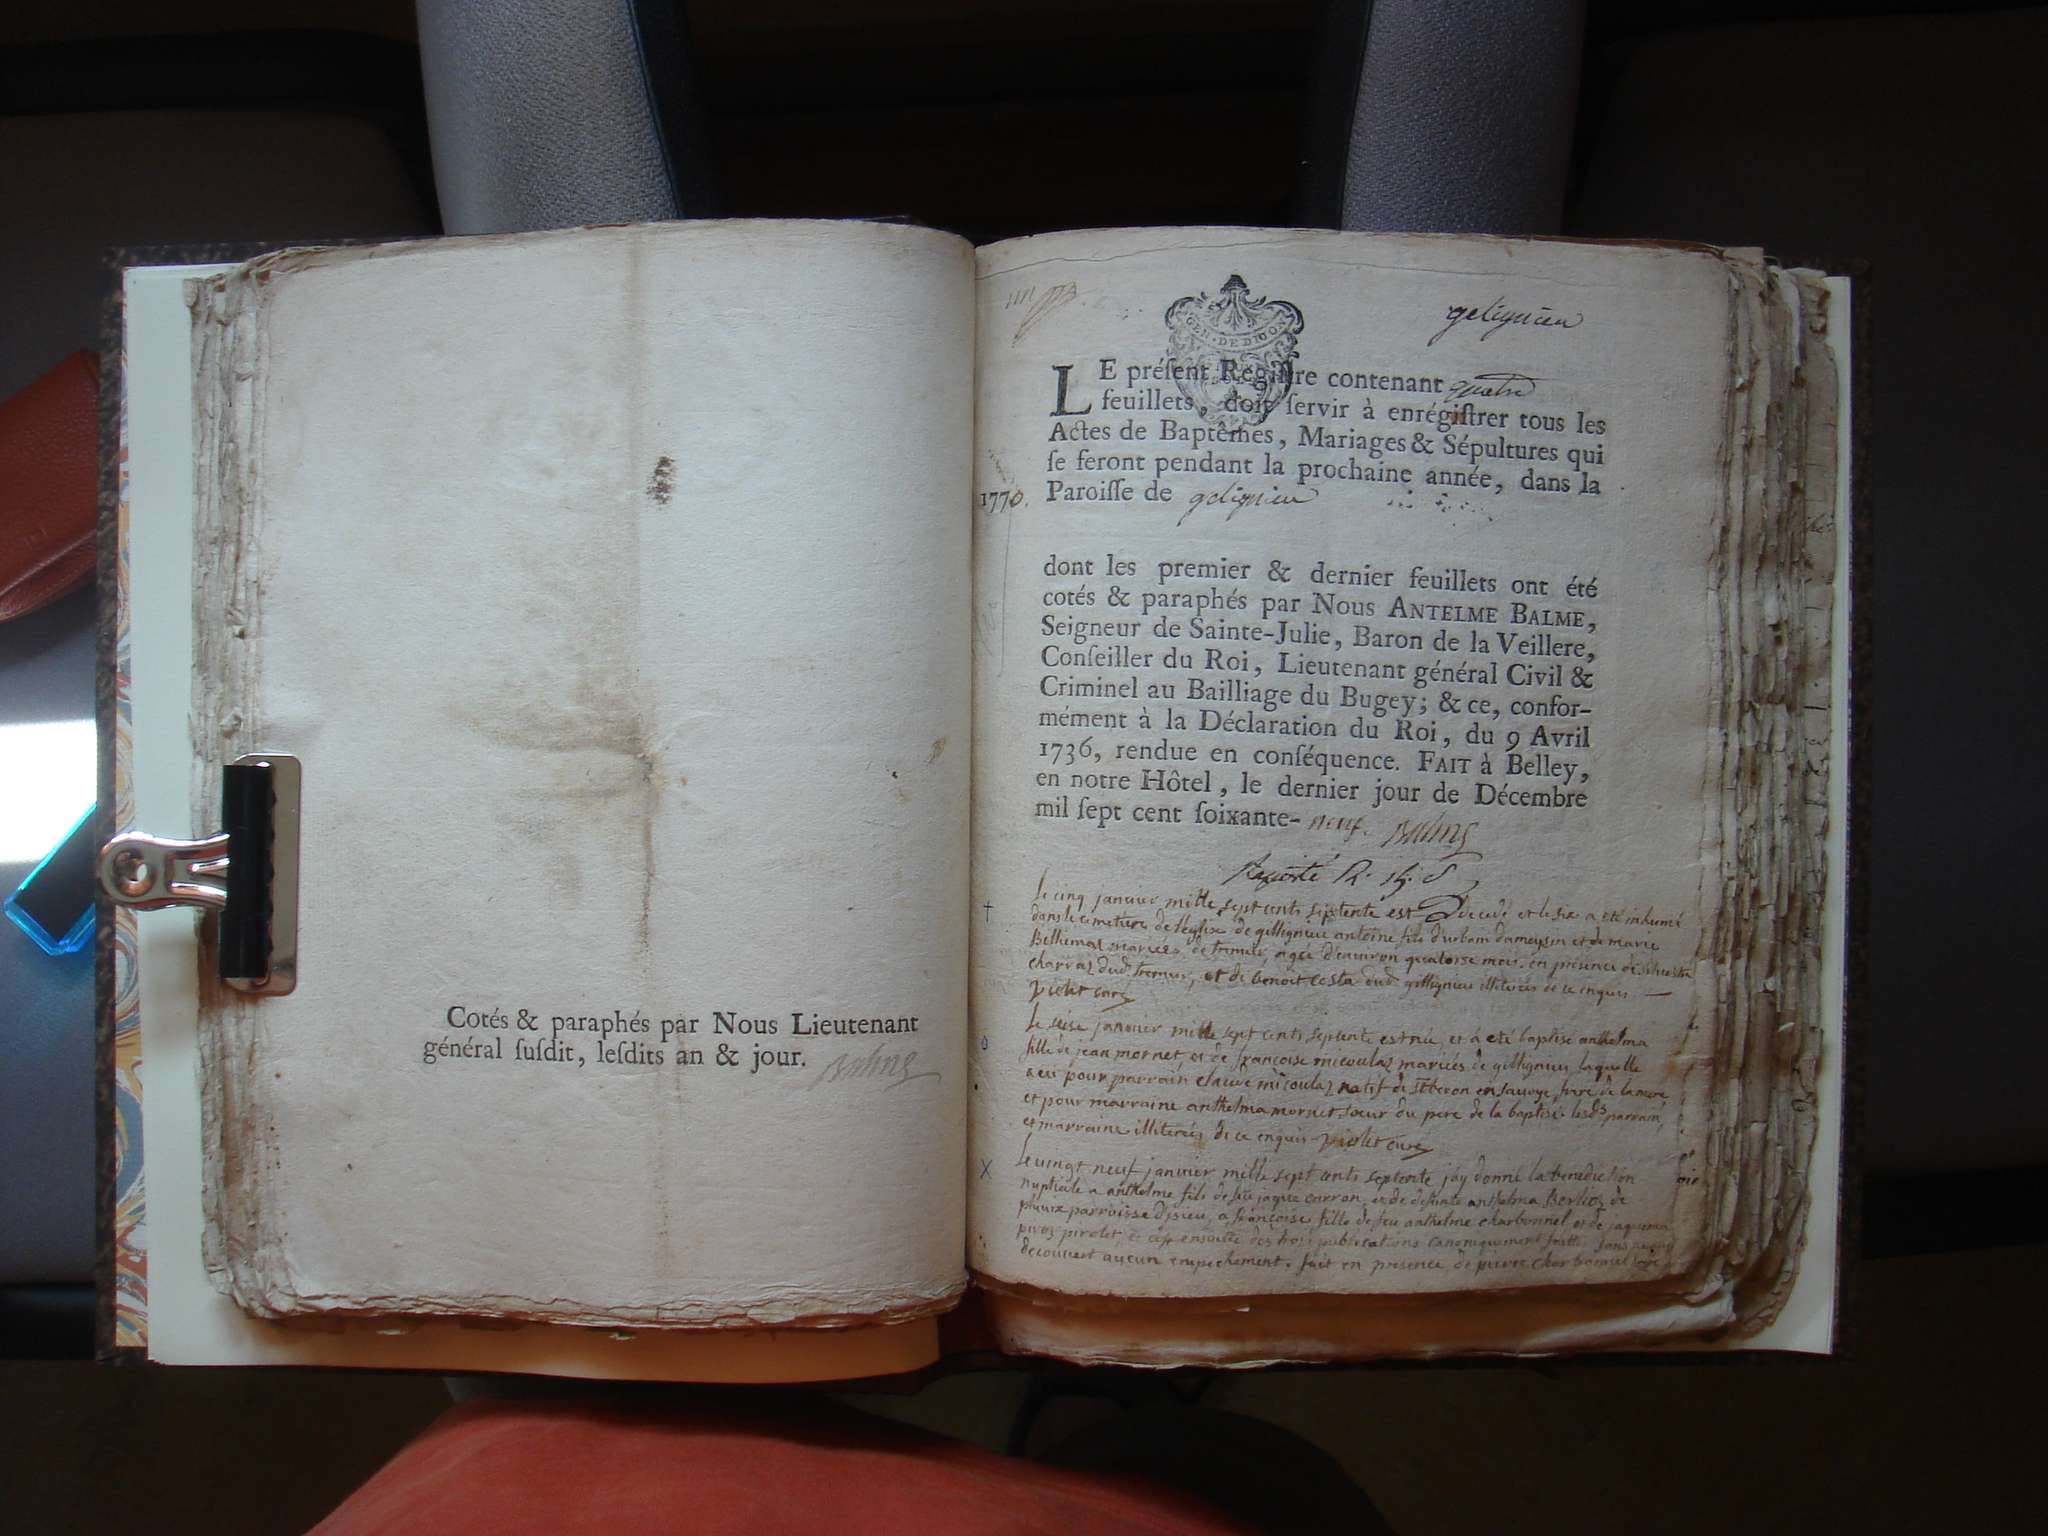 Cotés & paraphés par Nous Lieutenant
général ſuſdit, leſdits an & jour.
Balme
gelignieu
GEN · DE DIJON
LE préſent Regiſtre contenant quatre
feuillets, doit ſervir à enrégiſtrer tous les
Actes de Baptêmes, Mariages & Sépultures qui
ſe feront pendant la prochaine année, dans la
1770. Paroiſſe de gelignieu
dont les premier & dernier feuillets ont été
cotés & paraphés par Nous ANTELME BALME,
Seigneur de Sainte-Julie, Baron de la Veillere,
Conſeiller du Roi, Lieutenant général Civil &
Criminel au Bailliage du Bugey; & ce, confor-
mément à la Déclaration du Roi, du 9 Avril
1736, rendue en conſéquence. FAIT à Belley,
en notre Hôtel, le dernier jour de Décembre
mil ſept cent ſoixante-neuf. Balme
† Le cinq janvier mille sept cents septente est decedé et le six a été inhumé
dans le cemetiere de l'eglise de gillignieu antoine fils d'urbain dameysin et de marie
mariés de agé d'environ quatorse mois. en presence de
charvaz dud. et de benoit costa dud. gillignieu illiterés de ce enquis
violet curé
o Le seise janvier mille sept cents septente est née, et à eté baptisé anthelma
fille de jean mornet, et de françoise micoulaz mariés de gillignieu laquelle
a eu pour parrain claude micoulaz natif de st beron en savoye, frere de la mere
et pour marraine anthelma mornet sœur du pere de la baptisé. lesds parrain,
et marraine illiterés de ce enquis. violet curé
X Le vingt neuf janvier mille sept cents septente jay donné la benediction
nuptiale a anthelme fils de feu jaque carron, et de defunte anthelma Berlioz de
parroisse a françoise fille de feu anthelme charbonnel et de
et ce ensuitte des trois publications canoniquement faittes sans
decouvert aucun empechement. fait en presence de pierre charbonnel